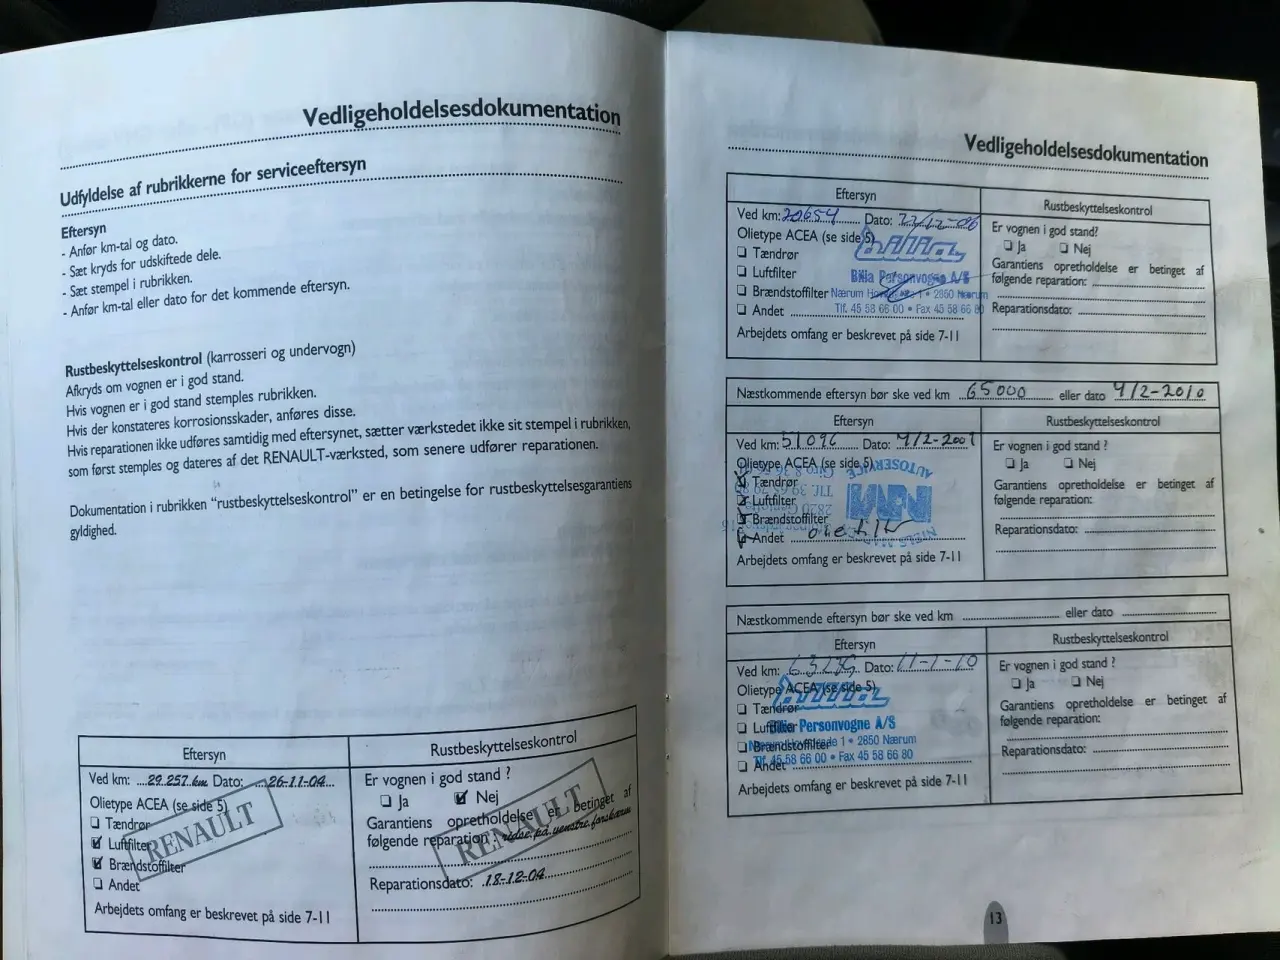 Vedligeholdelsesdokumentation
Udfyldelse af rubrikkerne for serviceeftersyn
Eftersyn
- Anfør km-tal og dato.
- Sæt kryds for udskiftede dele.
- Sæt stempel i rubrikken.
- Anfør km-tal eller dato for det kommende eftersyn.
Rustbeskyttelseskontrol (karrosseri og undervogn)
Afkryds om vognen er i god stand.
Hvis vognen er i god stand stemples rubrikken.
Hvis der konstateres korrosionsskader, anføres disse.
Hvis reparationen ikke udføres samtidig med eftersynet, sætter værkstedet ikke sit stempel i rubrikken,
som først stemples og dateres af det RENAULT-værksted, som senere udfører reparationen.
Dokumentation i rubrikken “rustbeskyttelseskontrol” er en betingelse for rustbeskyttelsesgarantiens
gyldighed.
Eftersyn
Ved km: 29.257.km Dato: 26-11-04
Olietype ACEA (se side 5)
Tændrør
Luftfilter
Brændstoffilter
Andet
RENAULT
Arbejdets omfang er beskrevet på side 7-11
Rustbeskyttelseskontrol
Er vognen i god stand ?
Ja Nej
Garantiens opretholdelse er betinget af
følgende reparation: ridse på venstre forskærm
RENAULT
Reparationsdato: 18-12-04
Vedligeholdelsesdokumentation
Eftersyn
Ved km: 20654 Dato: 22/12-06
Olietype ACEA (se side 5)
Tændrør
Luftfilter
Brændstoffilter
Andet
Bilia
Bilia Personvogne A/S
Nærum 1 • 2850 Nærum
Tlf. 45 58 66 00 • Fax 45 58 66 80
Arbejdets omfang er beskrevet på side 7-11
Rustbeskyttelseskontrol
Er vognen i god stand?
Ja Nej
Garantiens opretholdelse er betinget af
følgende reparation:
Reparationsdato:
Næstkommende eftersyn bør ske ved km 65000 eller dato 9/2-2010
Eftersyn
Ved km: 51096 Dato: 9/2-2009
Olietype ACEA (se side 5)
Tændrør
Luftfilter
Brændstoffilter
Andet
AUTOSERVICE
Arbejdets omfang er beskrevet på side 7-11
Rustbeskyttelseskontrol
Er vognen i god stand ?
Ja Nej
Garantiens opretholdelse er betinget af
følgende reparation:
Reparationsdato:
Næstkommende eftersyn bør ske ved km eller dato
Eftersyn
Ved km: Dato: 11-1-10
Olietype ACEA (se side 5)
Tændrør
Luftfilter
Brændstoffilter
Andet
Bilia
Bilia Personvogne A/S
Nærum Hovedgade 1 • 2850 Nærum
Tlf. 45 58 66 00 • Fax 45 58 66 80
Arbejdets omfang er beskrevet på side 7-11
Rustbeskyttelseskontrol
Er vognen i god stand ?
Ja Nej
Garantiens opretholdelse er betinget af
følgende reparation:
Reparationsdato:
13